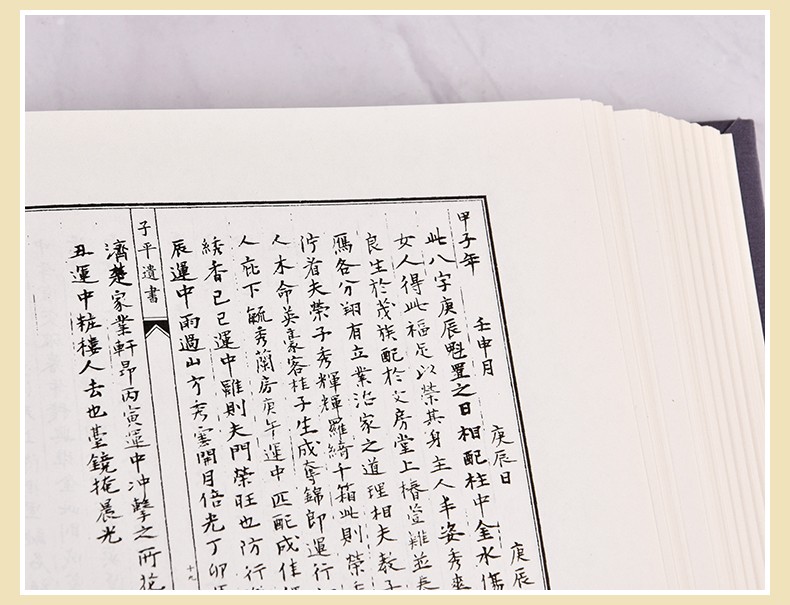 甲子年 壬申月 庚辰日 庚辰
此八字庚辰魁罡之日相配柱中金水傷
女人得此福足以榮其身主人丰姿秀爽
良生於茂族配於文房堂上椿萱雖並長
鴈各分翔有立業治家之道理相夫教子
夫榮子秀輝輝羅綺千箱此則榮
人本命英豪客桂子生成奪錦郎運行
人庇下毓秀蘭房庚午運中匹配成佳
綉香己巳運中雖則夫門榮旺也防行
辰運中雨過山方秀雲開月倍光丁卯
子平遺書
濟楚家業軒昂丙寅運中冲擊之所花
丑運中粧樓人去也臺鏡掩晨光